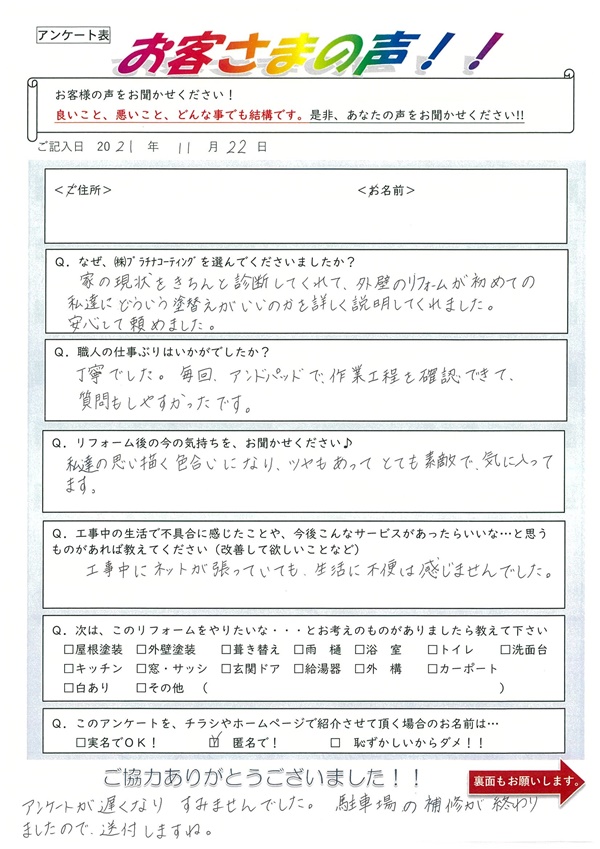 アンケート表
お客さまの声！！
お客様の声をお聞かせください！
良いこと、悪いこと、どんな事でも結構です。是非、あなたの声をお聞かせください!!
ご記入日 2021 年 11 月 22 日
＜ご住所＞ ＜お名前＞
Q．なぜ、㈱プラチナコーティングを選んでくださいましたか？
家の現状をきちんと診断してくれて、外壁のリフォームが初めての
私達にどういう塗替えがいいのかを詳しく説明してくれました。
安心して頼めました。
Q．職人の仕事ぶりはいかがでしたか？
丁寧でした。毎回、アンドパッドで、作業工程を確認できて、
質問もしやすかったです。
Q．リフォーム後の今の気持ちを、お聞かせください♪
私達の思い描く色合いになり、ツヤもあって とても素敵で、気に入って
ます。
Q．工事中の生活で不具合に感じたことや、今後こんなサービスがあったらいいな…と思う
ものがあれば教えてください（改善して欲しいことなど）
工事中にネットが張っていても、生活に不便は感じませんでした。
Q．次は、このリフォームをやりたいな・・・とお考えのものがありましたら教えて下さい
□屋根塗装 □外壁塗装 □葺き替え □雨　樋 □浴　室 □トイレ □洗面台
□キッチン □窓・サッシ □玄関ドア □給湯器 □外　構 □カーポート
□白あり □その他（　）
Q．このアンケートを、チラシやホームページで紹介させて頂く場合のお名前は…
□実名でOK！ ☑ 匿名で！ □ 恥ずかしいからダメ！！
ご協力ありがとうございました！！
裏面もお願いします。
アンケートが遅くなり すみませんでした。 駐車場の補修が終わり
ましたので、送付しますね。